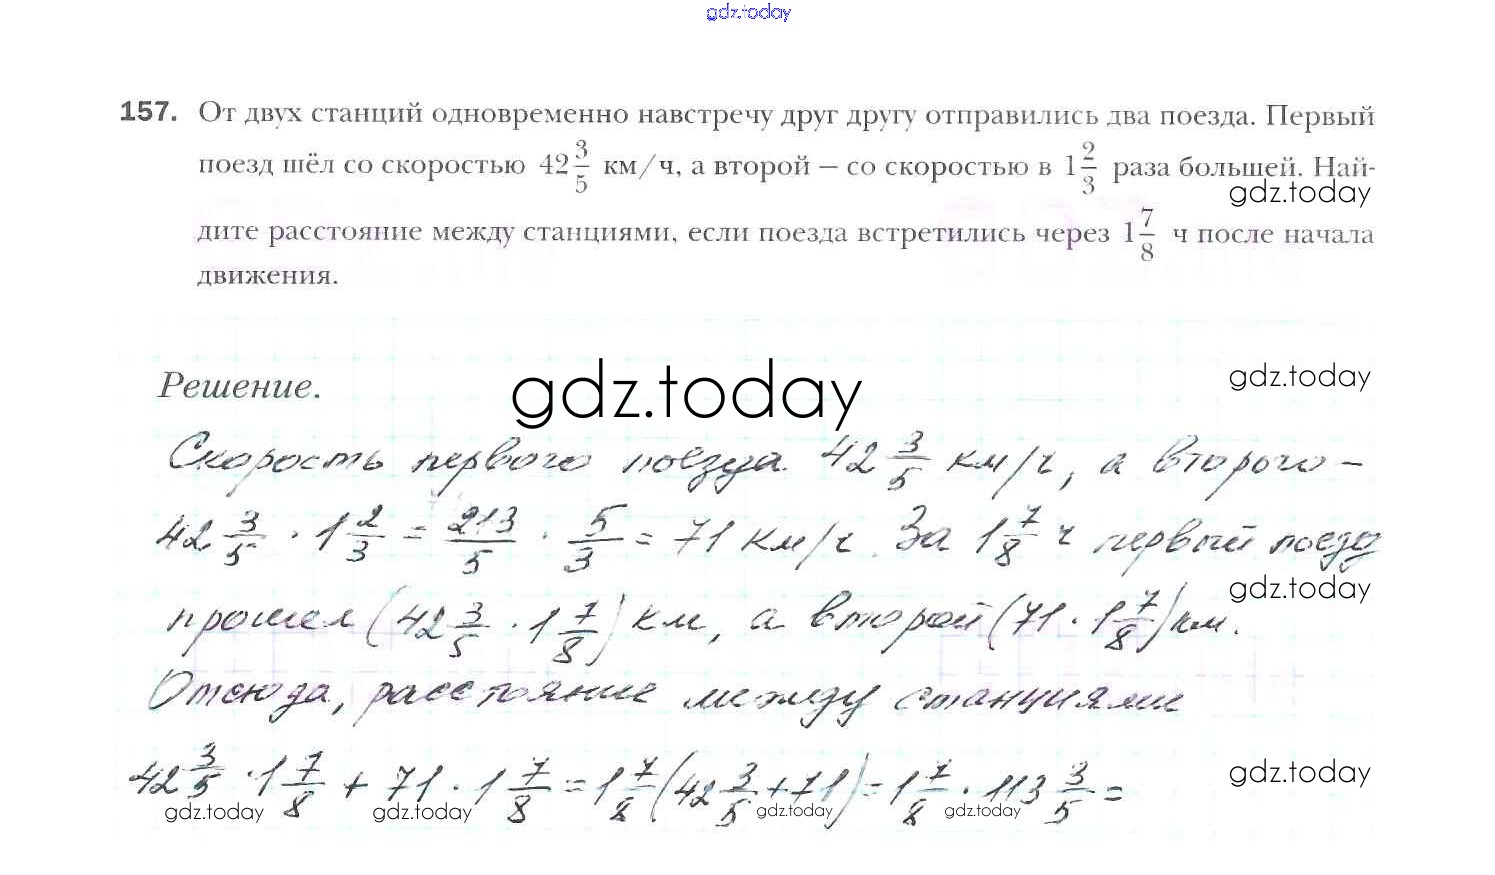 gdz.today
157. От двух станций одновременно навстречу друг другу отправились два поезда. Первый
поезд шёл со скоростью 42 3/5 км/ч, а второй – со скоростью в 1 2/3 раза большей. Най-
gdz.today
дите расстояние между станциями, если поезда встретились через 1 7/8 ч после начала
движения.
Решение.
gdz.today
gdz.today
Скорость первого поезда 42 3/5 км/ч, а второго –
42 3/5 · 1 2/3 = 213/5 · 5/3 = 71 км/ч. За 1 7/8 ч первый поезд
gdz.today
прошел (42 3/5 · 1 7/8) км, а второй (71 · 1 7/8) км.
Отсюда, расстояние между станциями
42 3/5 · 1 7/8 + 71 · 1 7/8 = 1 7/8 (42 3/5 + 71) = 1 7/8 · 113 3/5 =
gdz.today
gdz.today
gdz.today
gdz.today
gdz.today